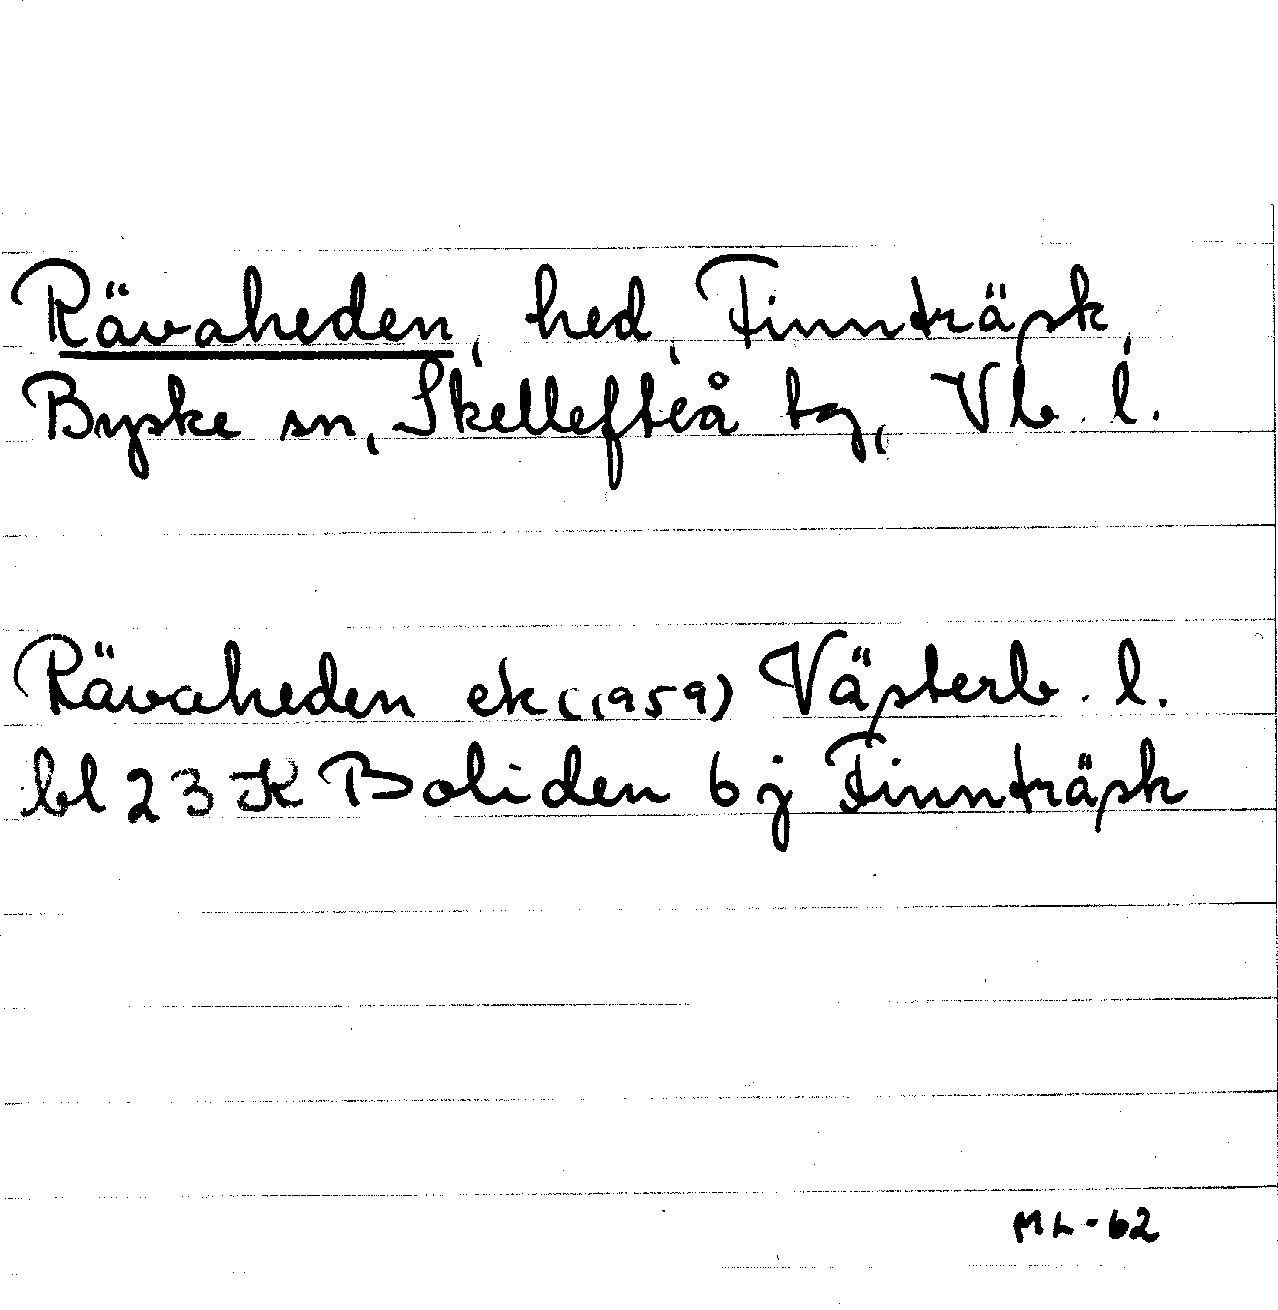 Rävaheden, hed, Finnträsk,
Byske sn, Skellefteå tg, Vb. l.
Rävaheden ek (1959) Västerb. l.
bl 23 K Boliden 6 j Finnträsk
ML-62